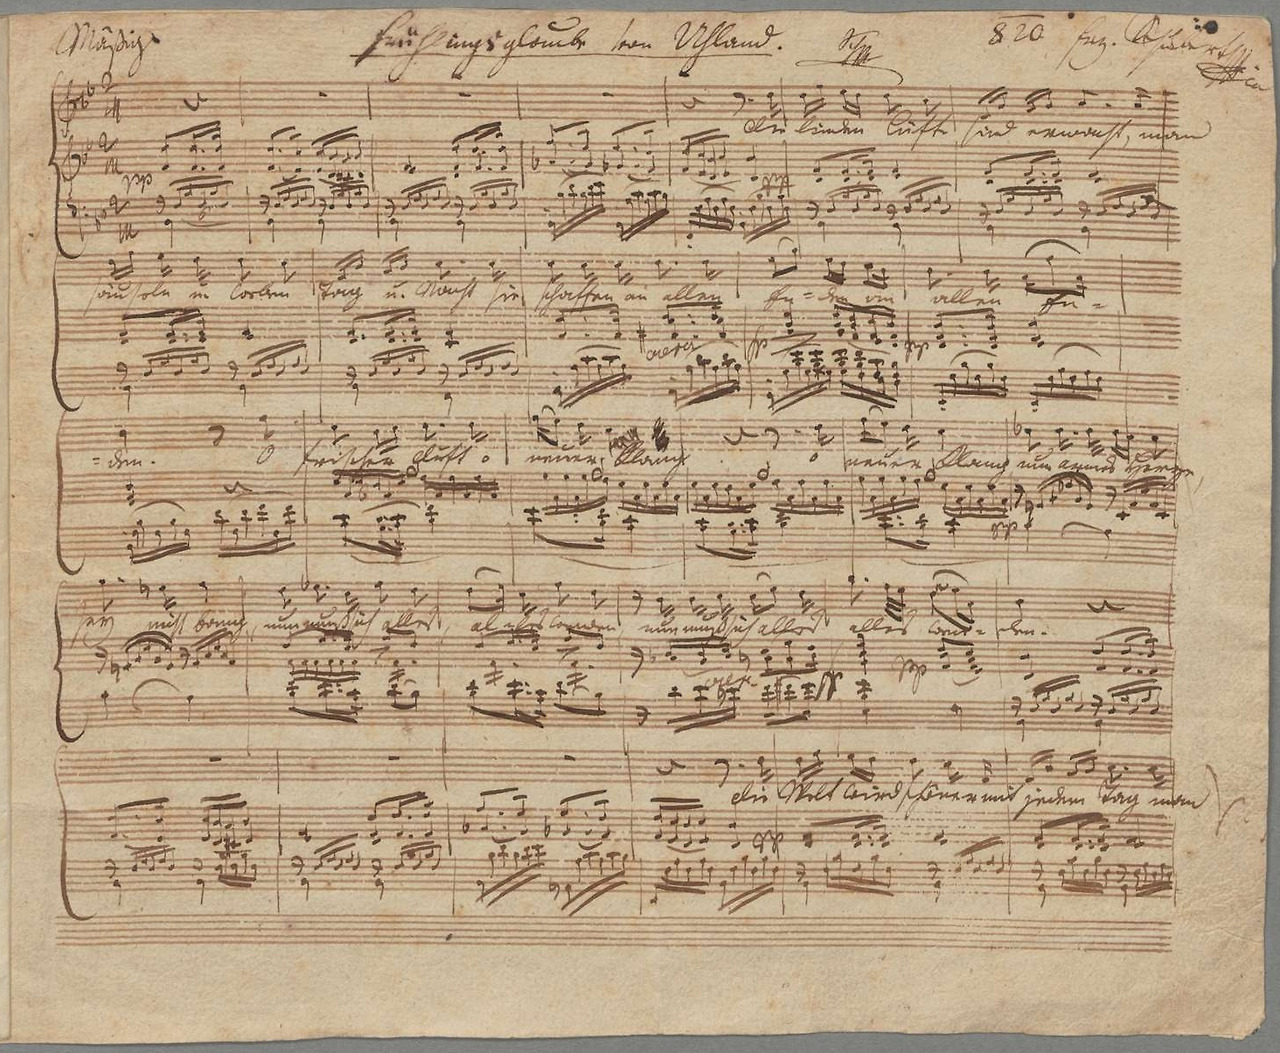 Mäßig Frühlingsglaube von Uhland. 820 frz. Schubert
pp
die linden Lüfte sind erwacht, man
säuseln u. weben Tag u. Nacht sie schaffen an allen En=den an allen En=
cresc
fp
pp
=den. O frischer Duft o neuer Klang o neuer Klang nun armes Herze,
pp
sey nicht bang, nun muß sich alles alles wenden nun muß sich alles alles wen=den.
cresc
pp
die Welt wird schöner mit jedem Tag man